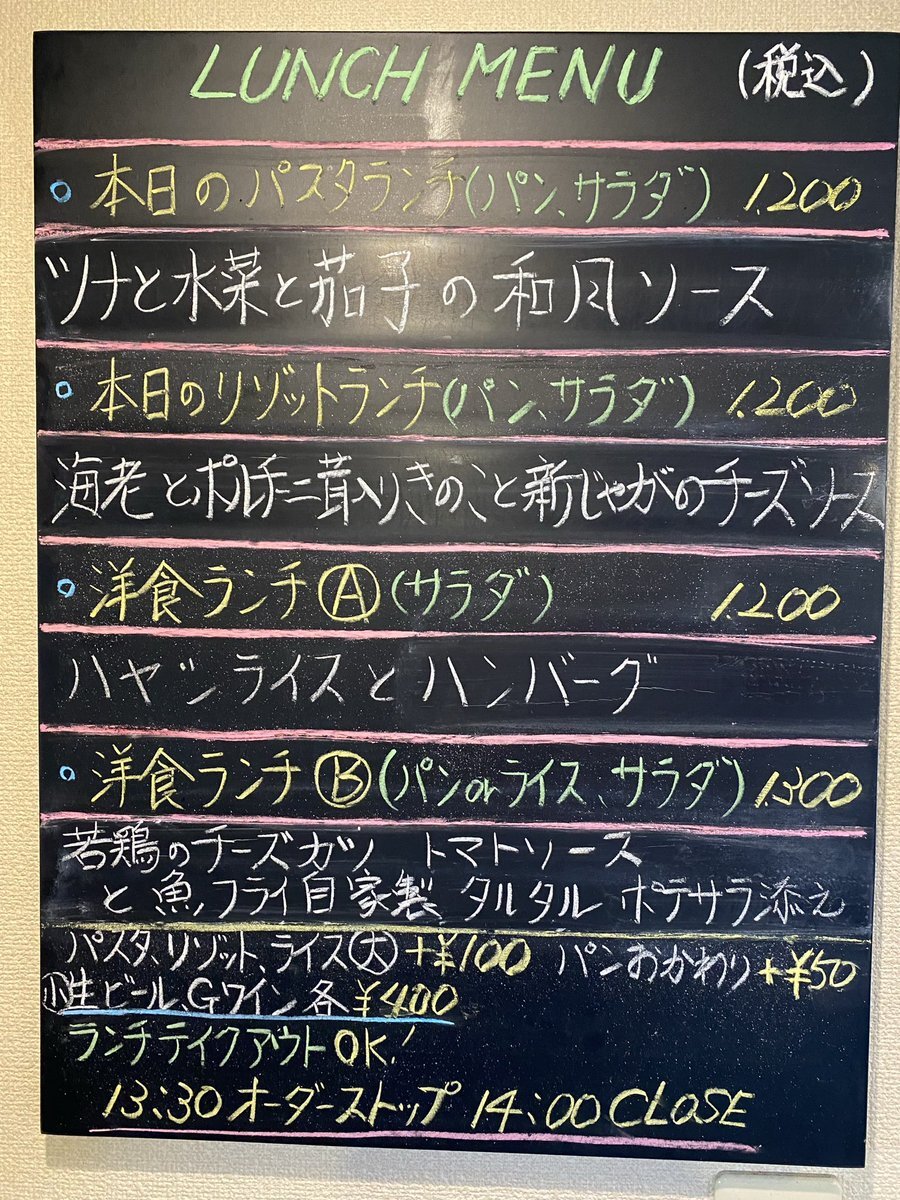 LUNCH MENU (税込)
本日のパスタランチ(パン、サラダ) 1.200
ツナと水菜と茄子の和风ソース
本日のリゾットランチ(パン、サラダ) 1.200
海老とポルチーニ茸入りきのこと新じゃがのチーズソース
洋食ランチⒶ(サラダ) 1.200
ハヤシライスとハンバーグ
洋食ランチⒷ(パンorライス、サラダ) 1.300
若鶏のチーズカツ トマトソース
と魚フライ自家製タルタル ポテサラ添え
パスタ、リゾット、ライス大 +¥100 パンおかわり+¥50
小生ビール、Gワイン各¥400
ランチテイクアウトOK!
13:30オーダーストップ 14:00 CLOSE